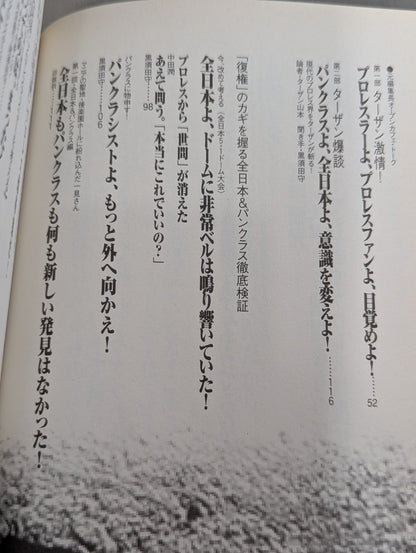 ●元編集長オープンカフェトーク
第一部 ターザン激情!
プロレスラーよ、プロレスファンよ、目覚めよ!……52
第二部 ターザン爆談
現代のプロレス界をターザンが斬る!
論者・ターザン山本 聞き手・黒須田守
パンクラスよ、全日本よ、意識を変えよ!……116
「復権」のカギを握る全日本&パンクラス徹底検証
今、改めて考える〈全日本5・1ドーム大会〉
全日本よ、ドームに非常ベルは鳴り響いていた!
中田潤
プロレスから「世間」が消えた
あえて問う。「本当にこれでいいの?」
……98
パンクラスに物申す!
黒須田守……106
パンクラシストよ、もっと外へ向かえ!
マニアの聖地・後楽園ホールに紛れ込んだ一見さん
第一部・全日本&パンクラス編
全日本もパンクラスも何も新しい発見はなかった!